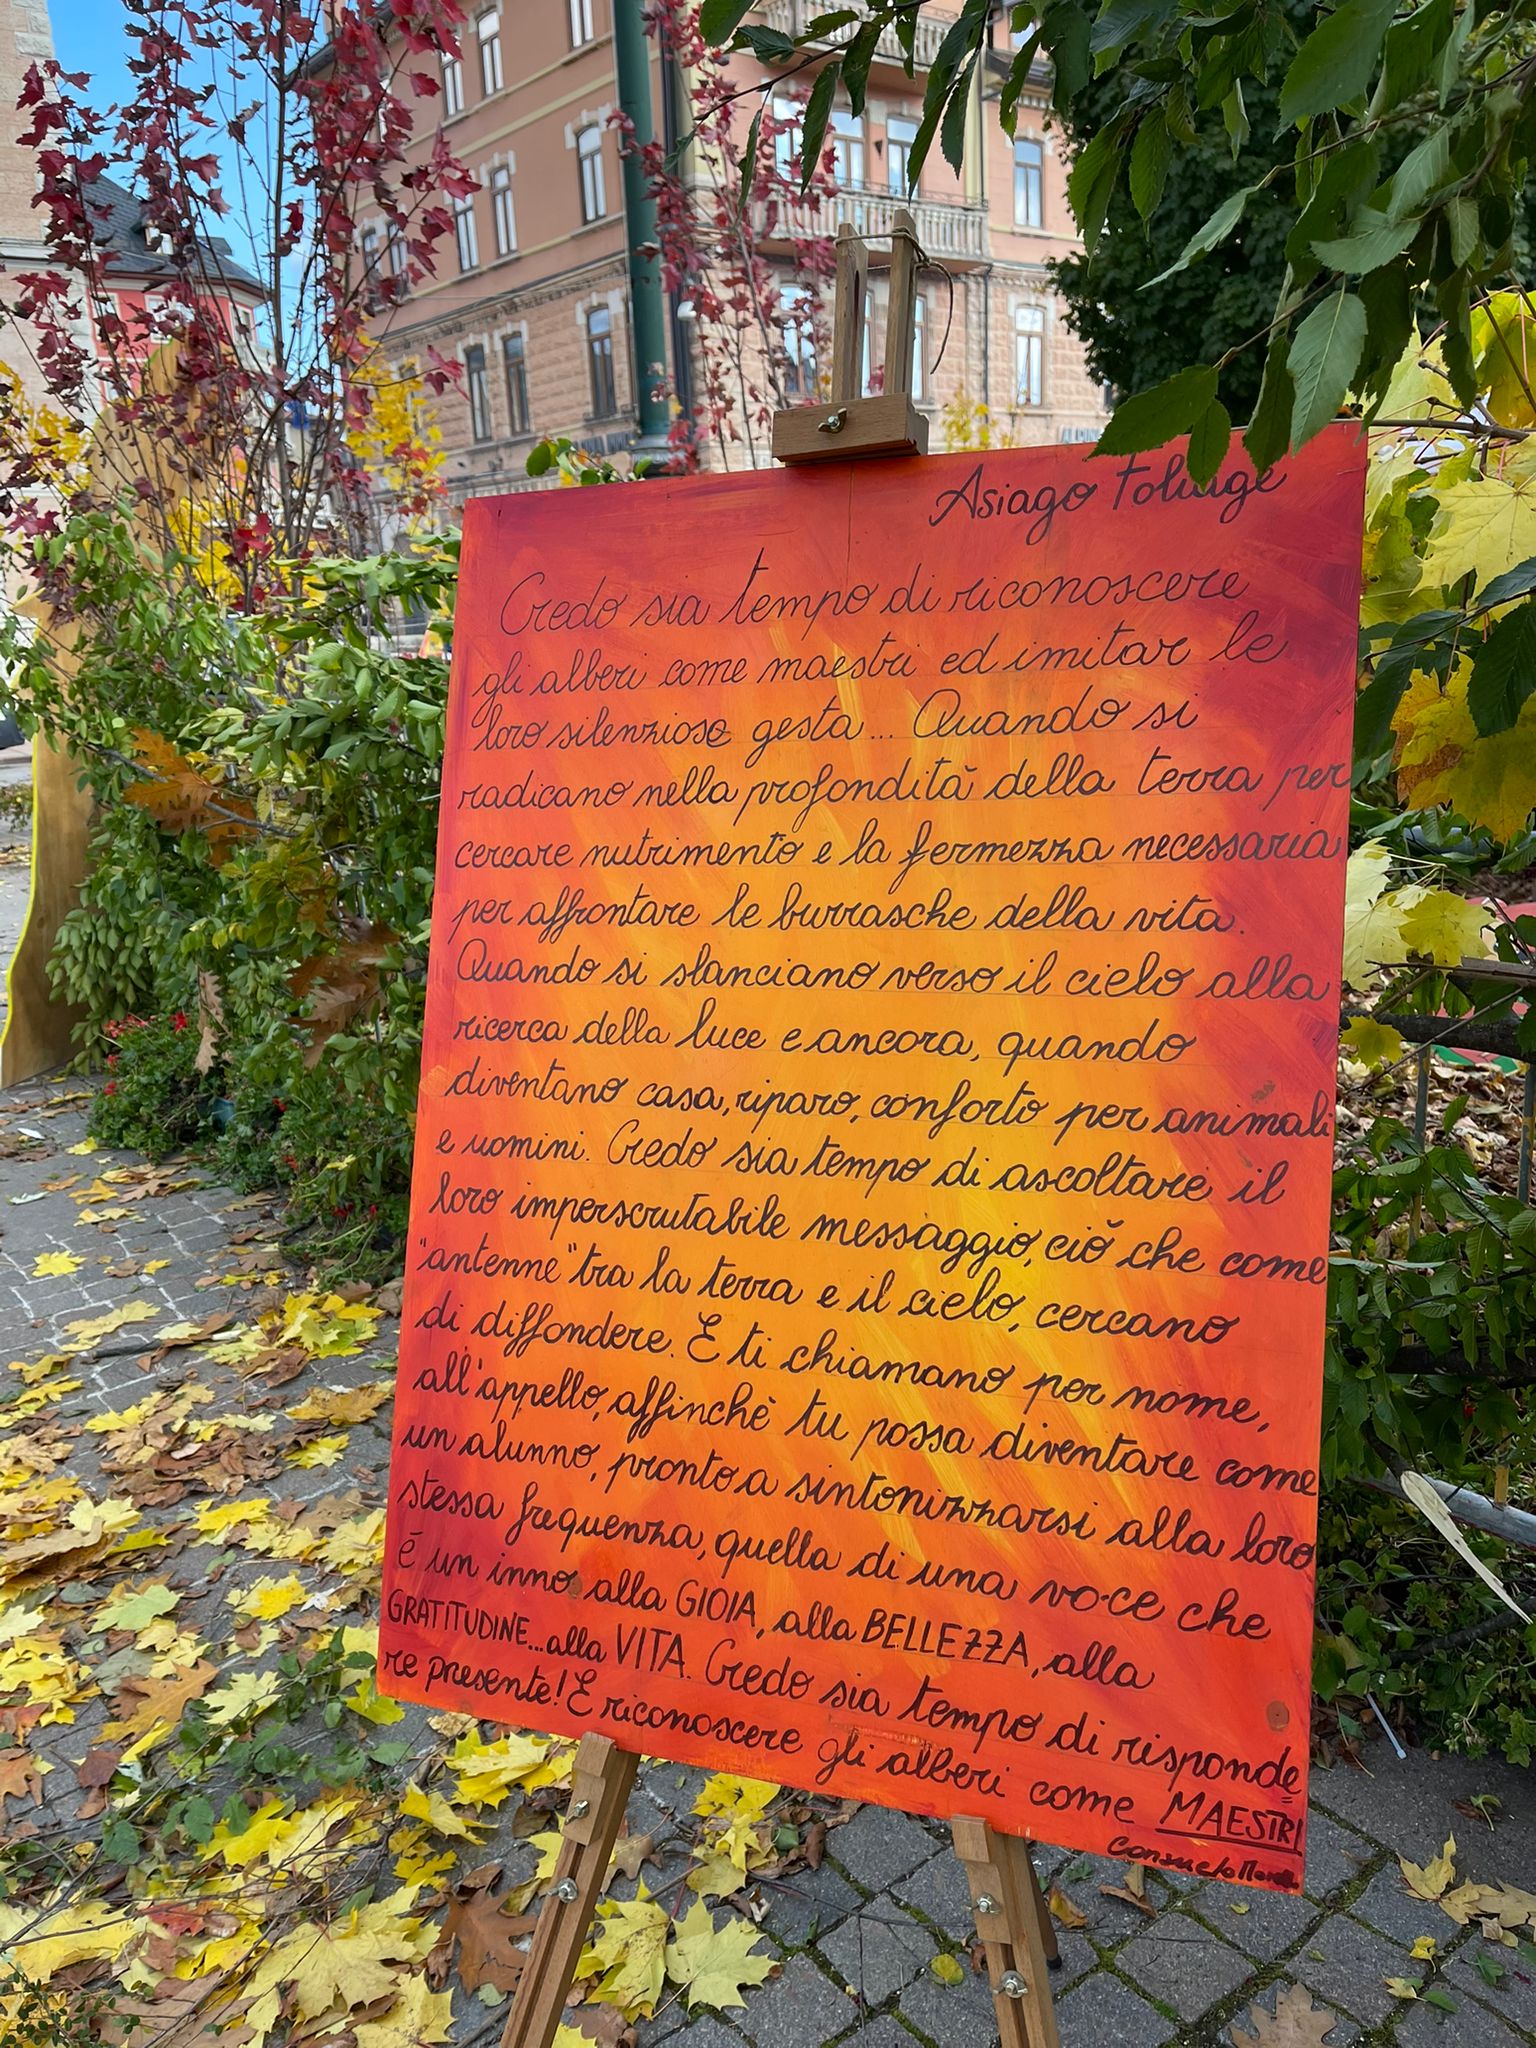 Asiago Foliage
Credo sia tempo di riconoscere
gli alberi come maestri ed imitar le
loro silenziose gesta... Quando si
radicano nella profondità della terra per
cercare nutrimento e la fermezza necessaria
per affrontare le burrasche della vita.
Quando si slanciano verso il cielo alla
ricerca della luce e ancora, quando
diventano casa, riparo, conforto per animali
e uomini. Credo sia tempo di ascoltare il
loro imperscrutabile messaggio, ciò che come
"antenne" tra la terra e il cielo, cercano
di diffondere. E ti chiamano per nome,
all'appello, affinchè tu possa diventare come
un alunno, pronto a sintonizzarsi alla loro
stessa frequenza, quella di una voce che
è un inno alla GIOIA, alla BELLEZZA, alla
GRATITUDINE... alla VITA. Credo sia tempo di risponde=
re presente! E riconoscere gli alberi come MAESTRI